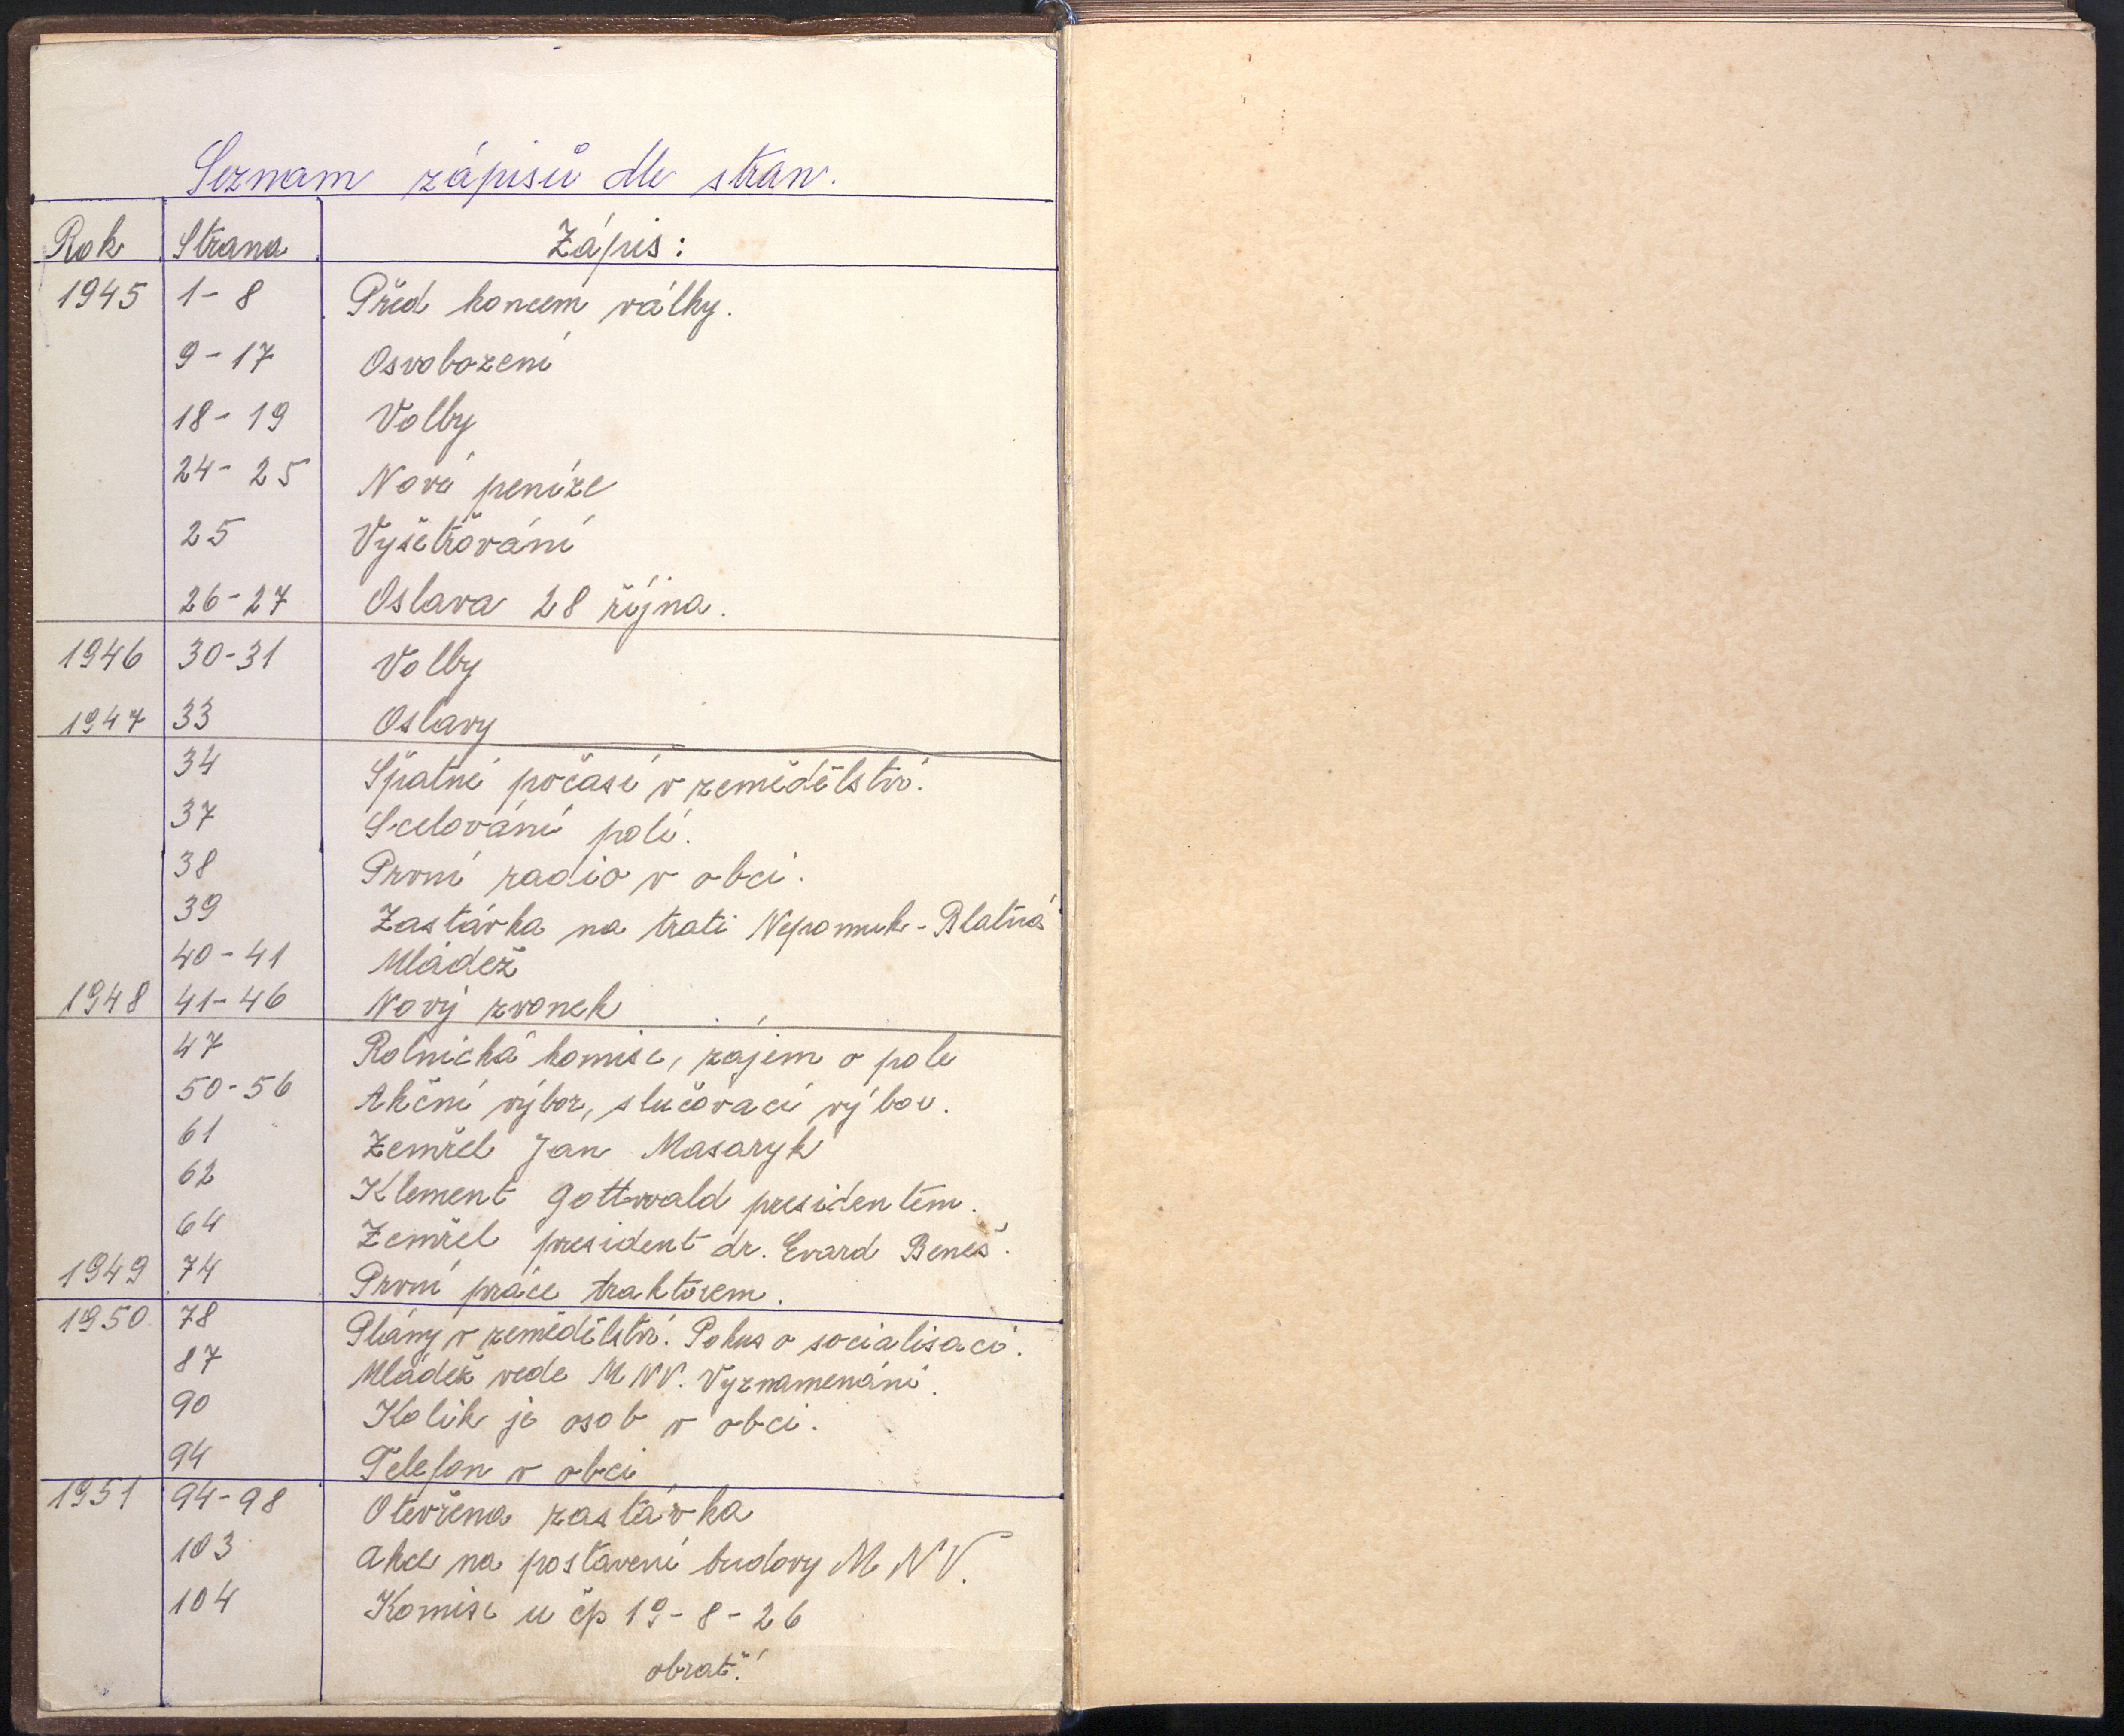 Seznam zápisů dle stran.
Rok Strana Zápis:
1945 1-8 Před koncem války.
9-17 Osvobození
18-19 Volby
24-25 Nové peníze
25 Vyšetřování
26-27 Oslava 28 října.
1946 30-31 Volby
1947 33 Oslavy
34 Špatné počasí v zemědělství.
37 Scelování polí.
38 První radio v obci.
39 Zastávka na trati Nepomuk-Blatná
40-41 Mládež
1948 41-46 Nový zvonek
47 Rolnická komise, zájem o pole
50-56 Akční výbor, slučovací výbor.
61 Zemřel Jan Masaryk
62 Klement Gottwald presidentem.
64 Zemřel president dr. Evard Beneš.
1949 74 První práce traktorem.
1950 78 Plány v zemědělství. Pokus o socialisaci.
87 Mládež vede MNV. Vyznamenání.
90 Kolik je osob v obci.
94 Telefon v obci
1951 94-98 Otevřena zastávka
103 Akce na postavení budovy MNV.
104 Komise u čp 19-8-26
obrať!